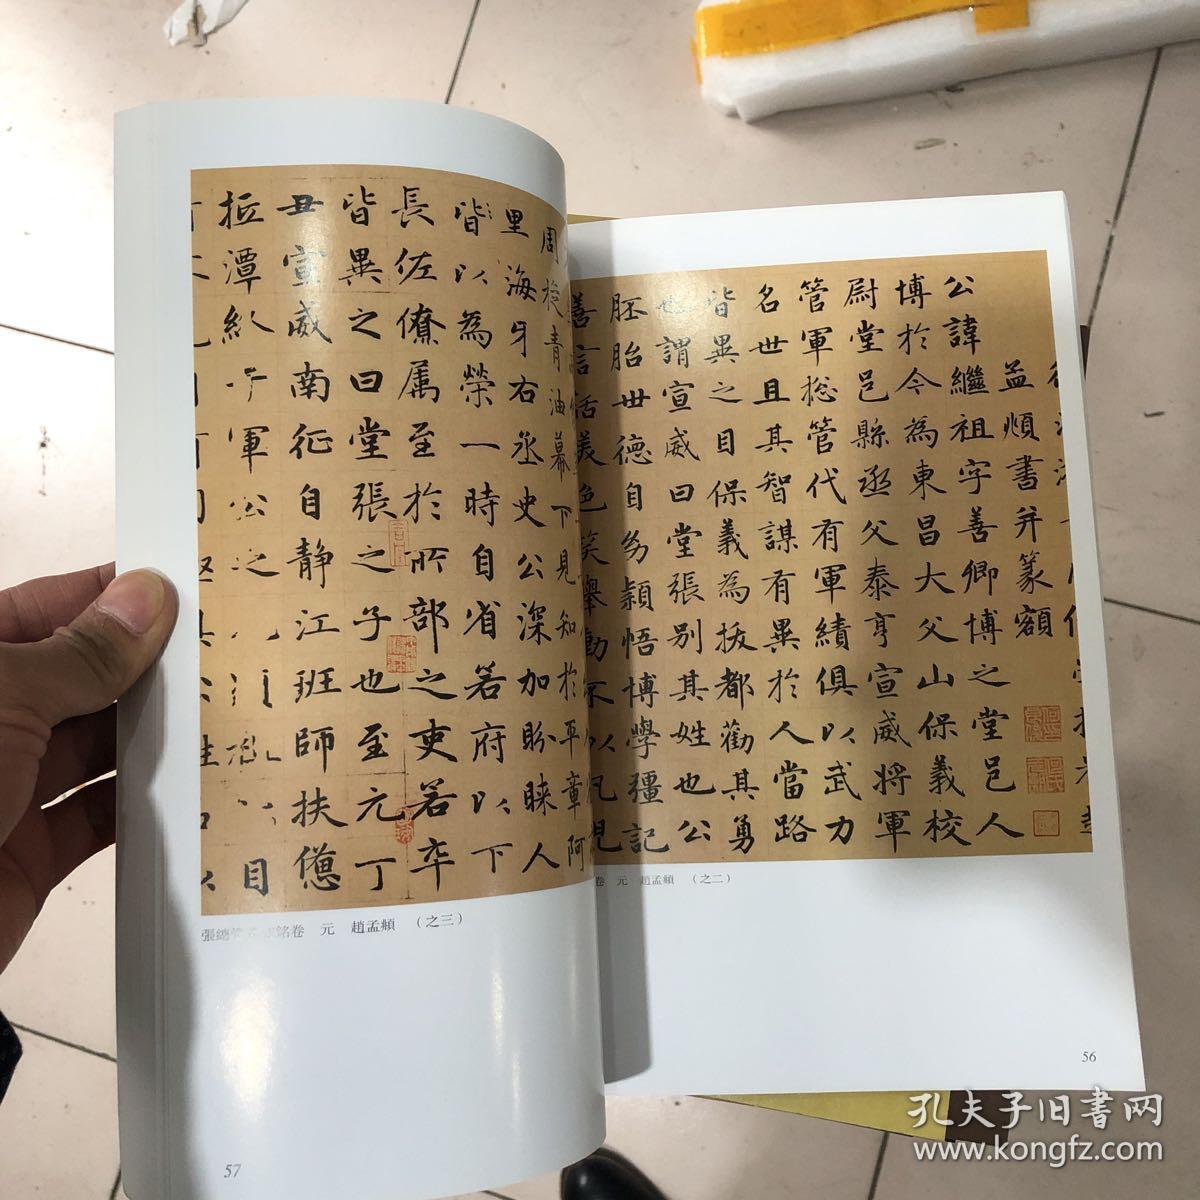 孟頫書并篆額
公諱繼祖字善卿博之堂邑人
博於今為東昌大父山保義校
尉堂邑縣丞父泰亨宣威將軍
管軍捴管代有軍績俱以武力
名世且其智謀有異於人當路
皆異之目保義為拔都勸其勇
也謂宣威曰堂張別其姓也公
胚胎世德自幼穎悟博學彊記
善言話美色笑舉動不以凡兒
卷 元 趙孟頫 (之二)
56
周捴青油幕下見知於平章阿
里海牙右丞史公深加眄睞人
皆以為榮一時自省若府以下
長佐僚属至於所部之吏若卒
皆異之曰堂張之子也至元丁
丑宣威南征自静江班師扶儓
目
張總管 銘卷 元 趙孟頫 (之三)
57
孔夫子旧書网
www.kongfz.com